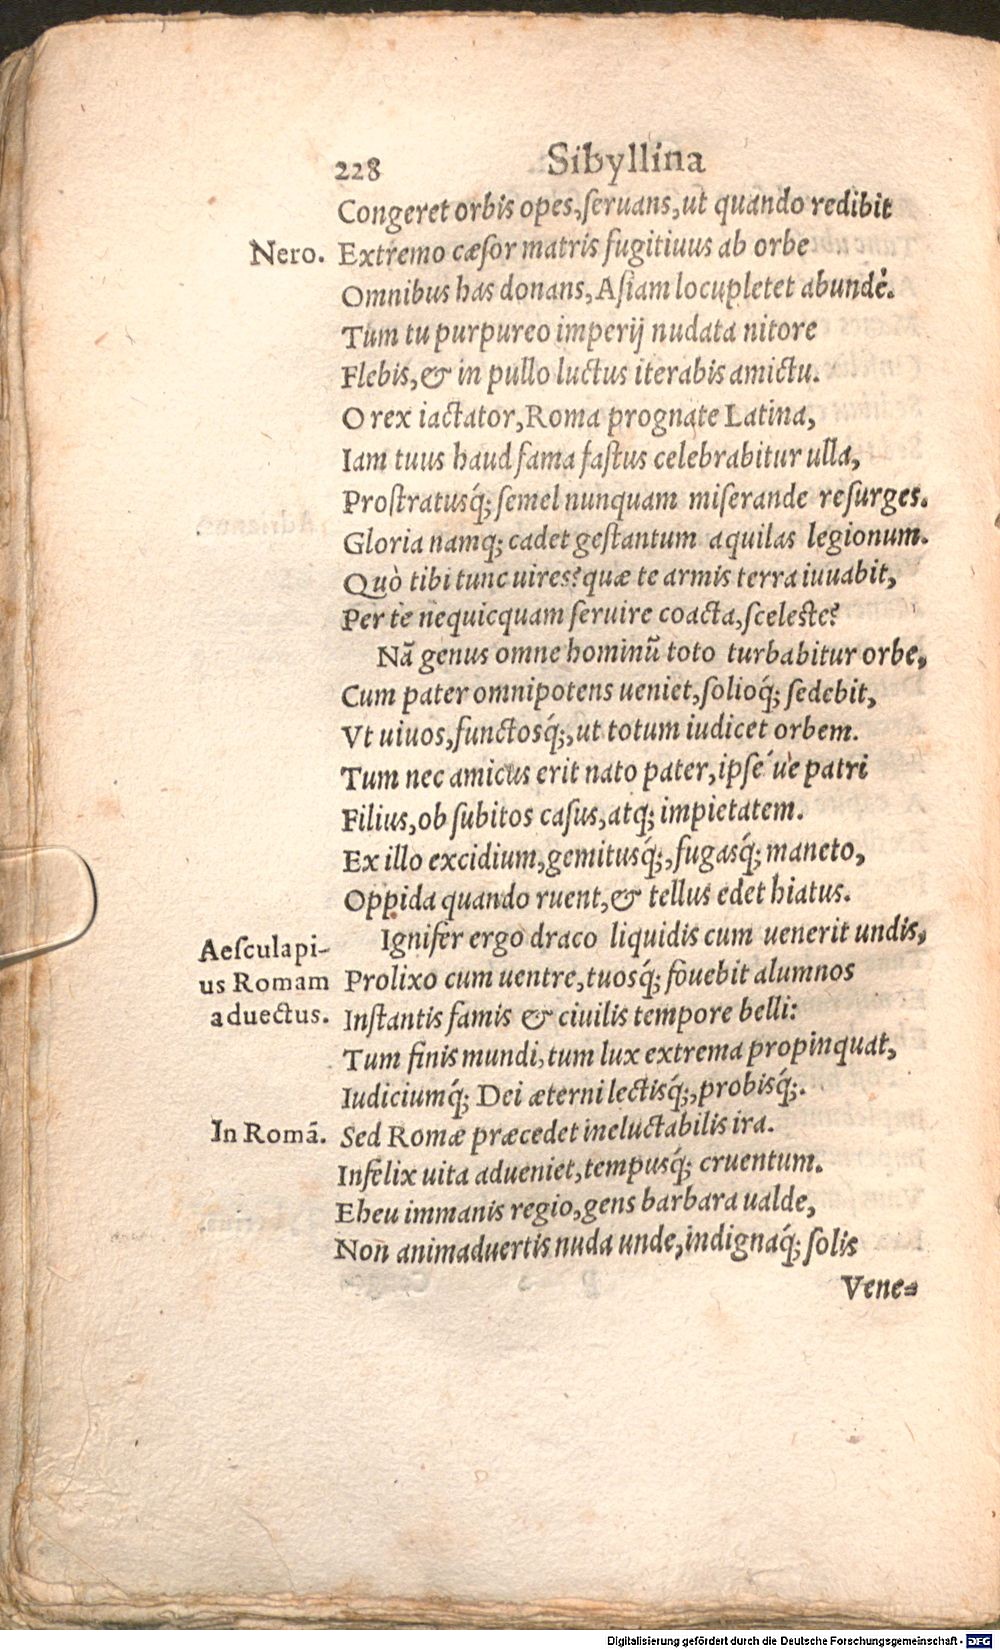 228 Sibyllina
Congeret orbis opes, ſeruans, ut quando redibit
Nero. Extremo cæſor matris fugitiuus ab orbe
Omnibus has donans, Aſiam locupletet abundè.
Tum tu purpureo imperij nudata nitore
Flebis, & in pullo luctus iterabis amictu.
O rex iactator, Roma prognate Latina,
Iam tuus haud fama faſtus celebrabitur ulla,
Proſtratusq́; ſemel nunquam miſerande reſurges.
Gloria namq; cadet geſtantum aquilas legionum.
Quò tibi tunc uires? quæ te armis terra iuuabit,
Per te nequicquam ſeruire coacta, ſceleſte?
Nã genus omne hominũ toto turbabitur orbe,
Cum pater omnipotens ueniet, ſolioq́; ſedebit,
Vt uiuos, functosq́;, ut totum iudicet orbem.
Tum nec amicus erit nato pater, ipſé ue patri
Filius, ob ſubitos caſus, atq; impietatem.
Ex illo excidium, gemitusq́;, fugasq́; maneto,
Oppida quando ruent, & tellus edet hiatus.
Ignifer ergo draco liquidis cum uenerit undis,
Aeſculapi-
us Romam
aduectus.
Prolixo cum uentre, tuosq́; fouebit alumnos
Inſtantis famis & ciuilis tempore belli:
Tum finis mundi, tum lux extrema propinquat,
Iudiciumq́; Dei æterni lectisq́;, probisq́;.
In Romã. Sed Romæ præcedet ineluctabilis ira.
Infelix uita adueniet, tempusq́; cruentum.
Eheu immanis regio, gens barbara ualde,
Non animaduertis nuda unde, indignaq́; ſolis
Vene-
Digitalisierung gefördert durch die Deutsche Forschungsgemeinschaft - DFG